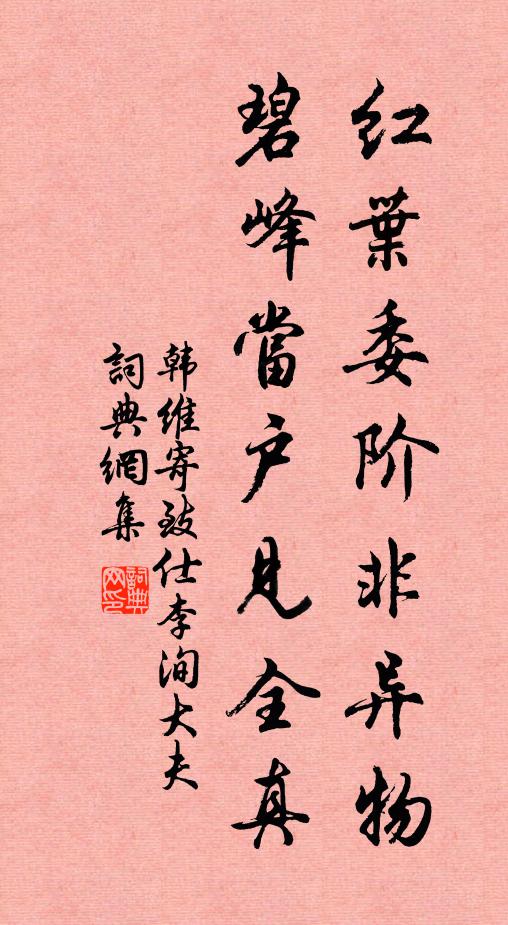 红葉委阶非异物
碧峰當户見全真
韩維寄致仕李洵大夫
詞典網集
詞典
网印